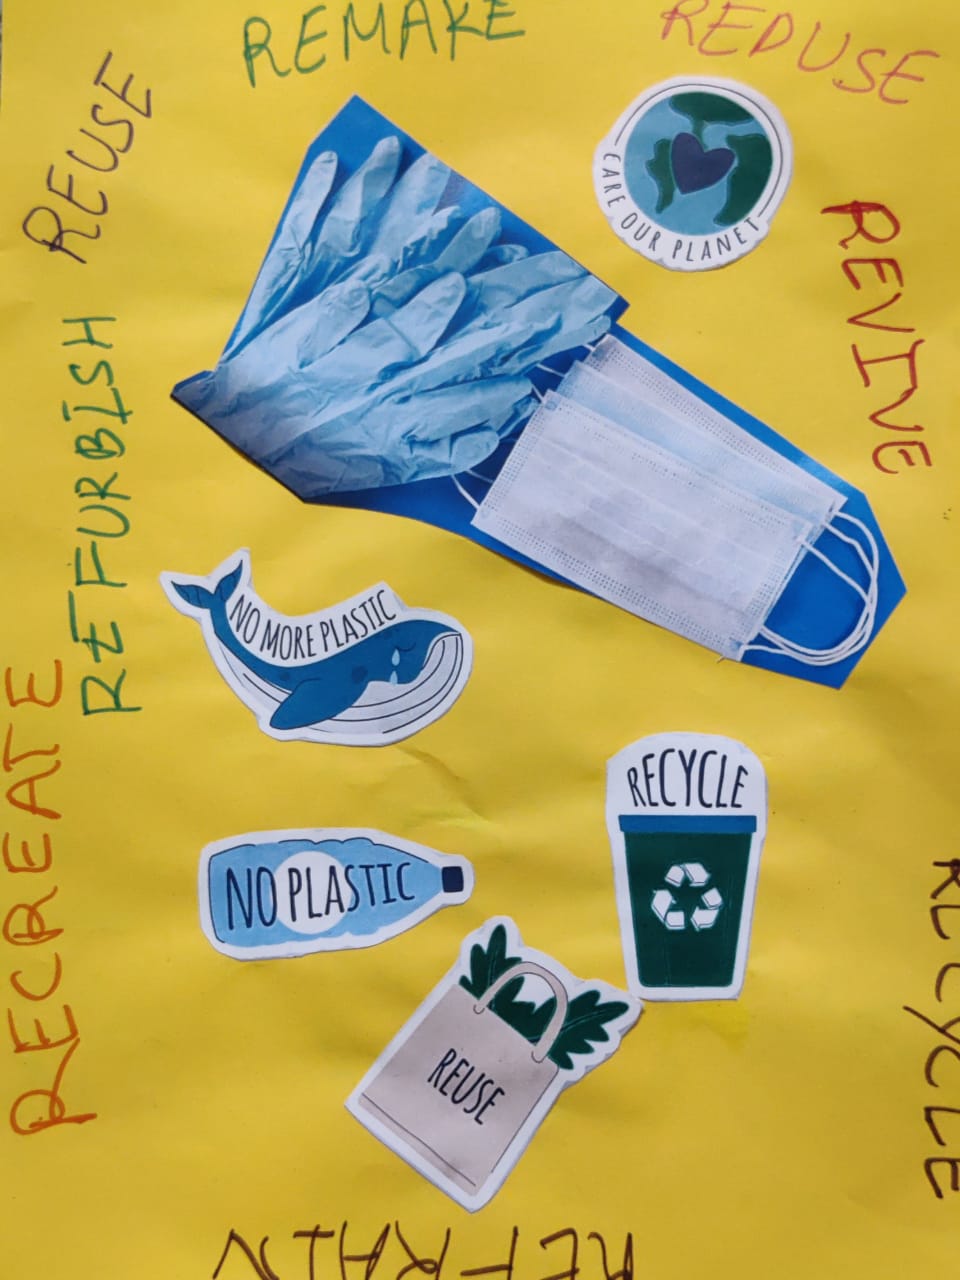 REMAKE
REDUSE
REUSE
CARE OUR PLANET
REVIVE
REFURBISH
NO MORE PLASTIC
RECREATE
RECYCLE
NO PLASTIC
RECYCLE
REUSE
REFRAIN